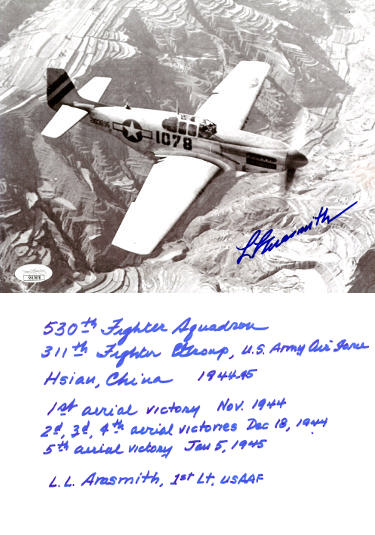 1078
L Arasmith
JSA
530th Fighter Squadron
311th Fighter Group, U.S. Army Air Force
Hsian, China 1944-45
1st aerial victory Nov. 1944
2d, 3d, 4th aerial victories Dec 18, 1944
5th aerial victory Jan 5, 1945
L.L. Arasmith, 1st Lt. USAAF